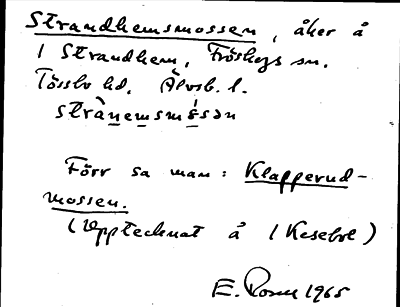 Strandhemsmossen, åker å
1 Strandhem, Fröskogs sn.
Tössbo hd. Älvsb. l.
strànemsmớsən
Förr sa man: Klapperud-
mossen.
(Upptecknat å 1 Kesebol)
E. 1965